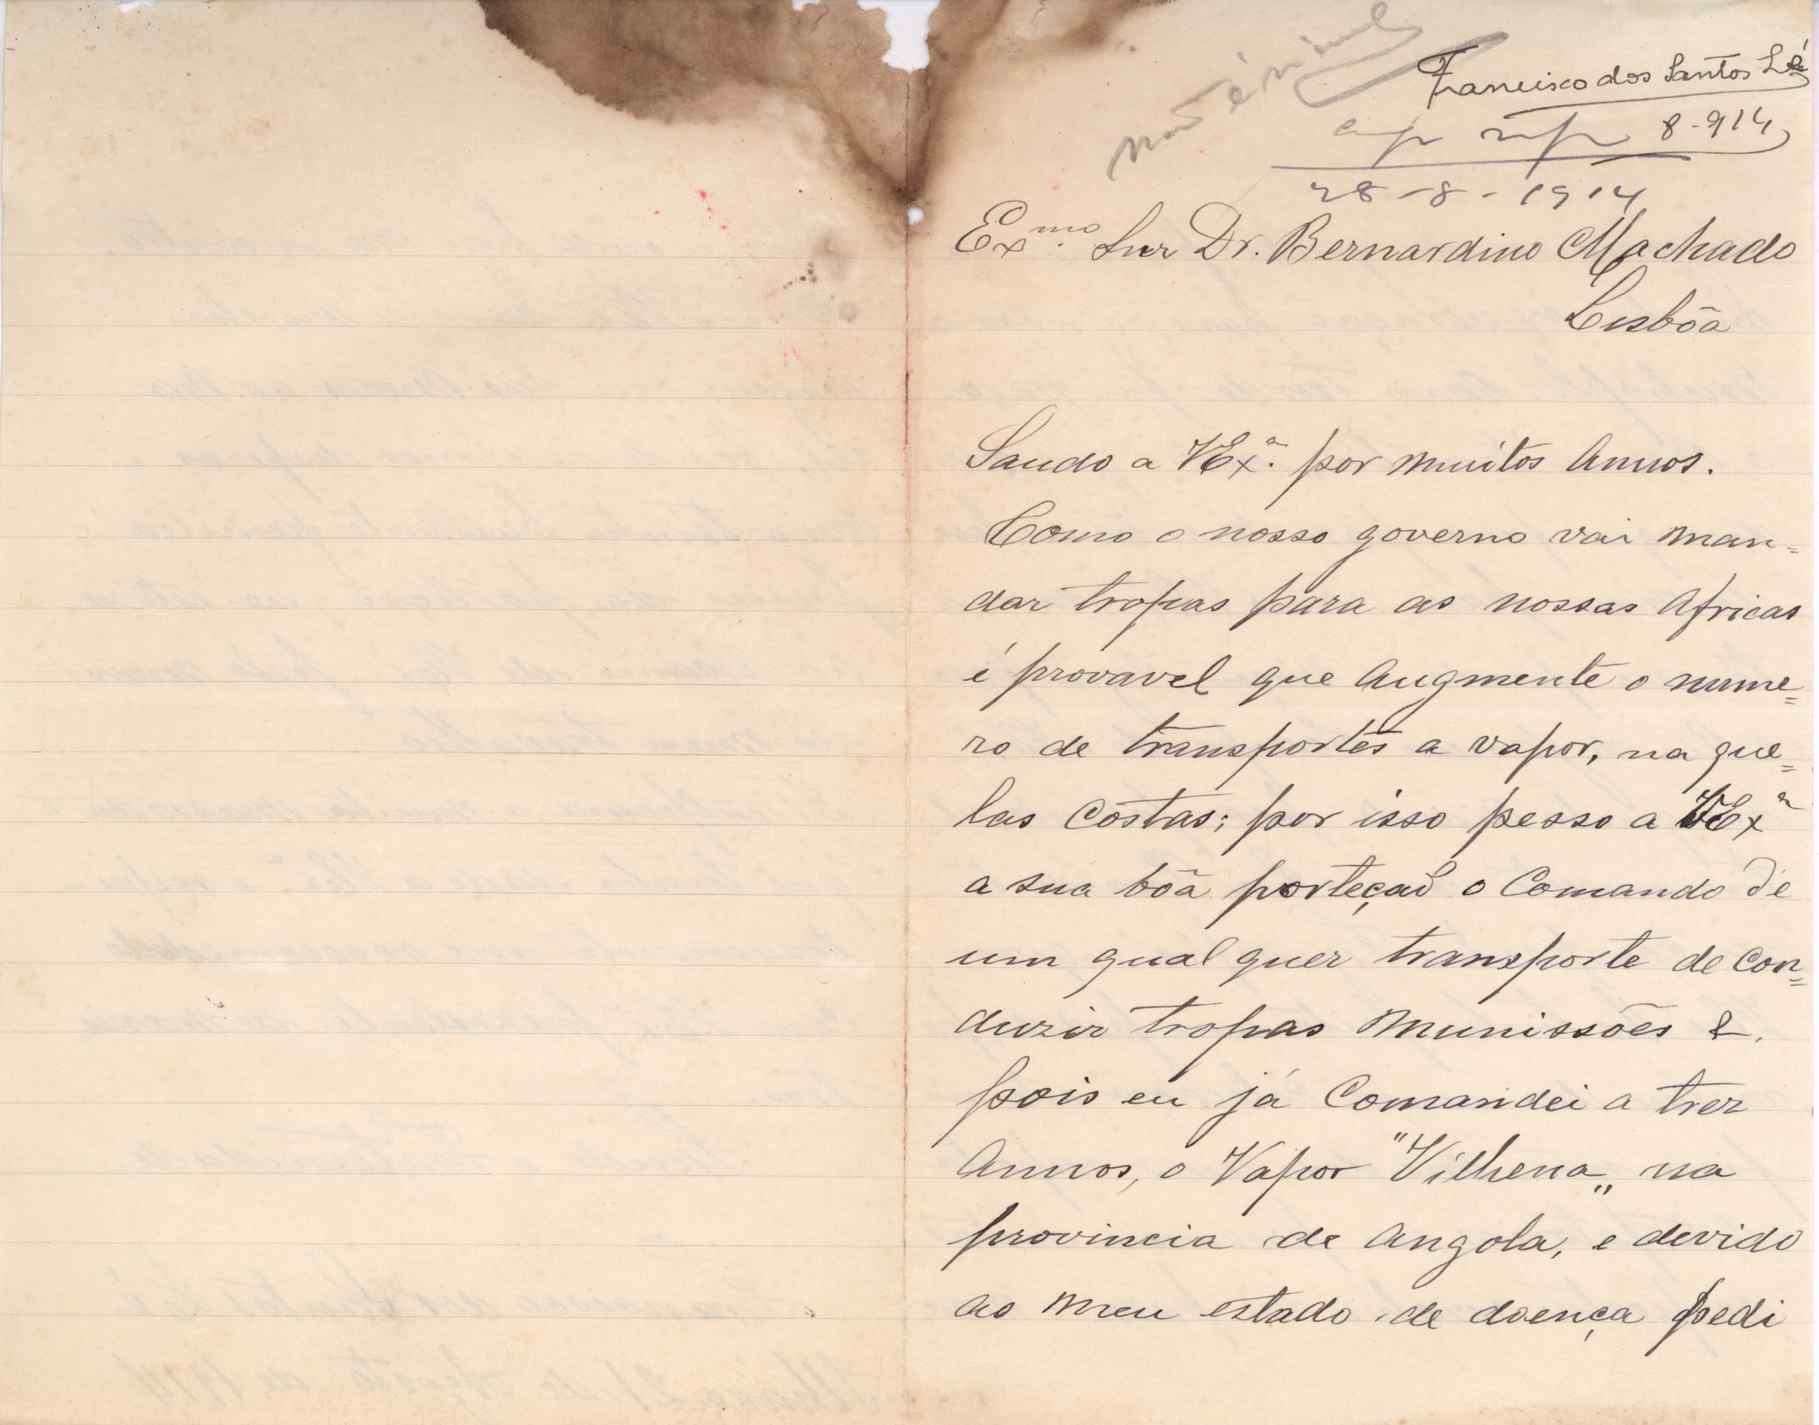 não é
Francisco dos Santos Lé
resp 8-914
28-8-1914
Ex.mo Snr Dr. Bernardino Machado
Lisbôa
Saudo a VEx.ª por muitos Annos.
Como o nosso governo vai man=
dar tropas para as nossas Africas
é provavel que Augmente o nume=
ro de transportes a vapor, na que=
las Costas; por isso pesso a VExª
a sua bôa porteçaõ o Comando de
um qual quer transporte de Con=
duzir tropas Munissões &.
pois eu já Comandei a trez
Annos, o Vapor "Vilhena„ na
provincia de Angola, e devido
ao meu estado de doença pedi